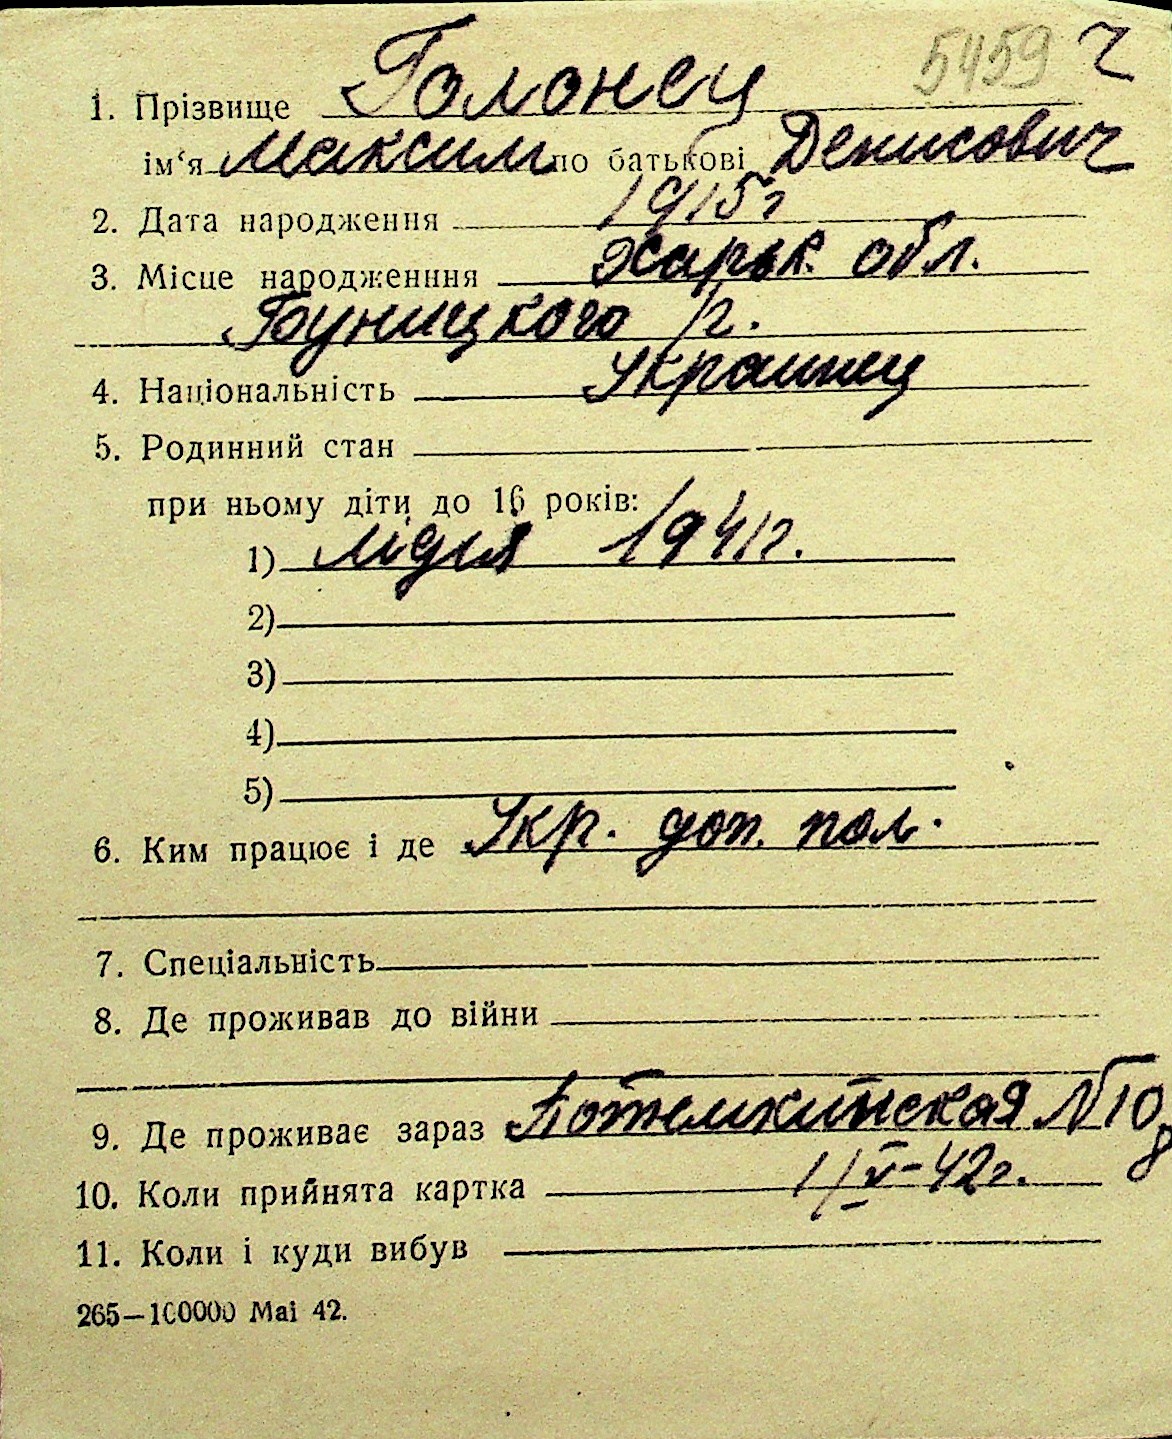 5459 ч
1. Прізвище Голонец
ім‘я Максим по батькові Денисович
2. Дата народження 1915г
3. Місце народженння Харьк. обл.
р.
4. Національність Украинец
5. Родинний стан
при ньому діти до 16 років:
1) Лідия 1941г.
2)
3)
4)
5)
6. Ким працює і де Укр. доп. пол.
7. Спеціальність
8. Де проживав до війни
9. Де проживає зараз Потемкинская №10
10. Коли прийнята картка 1/V-42г.
11. Коли і куди вибув
265—100000 Mai 42.